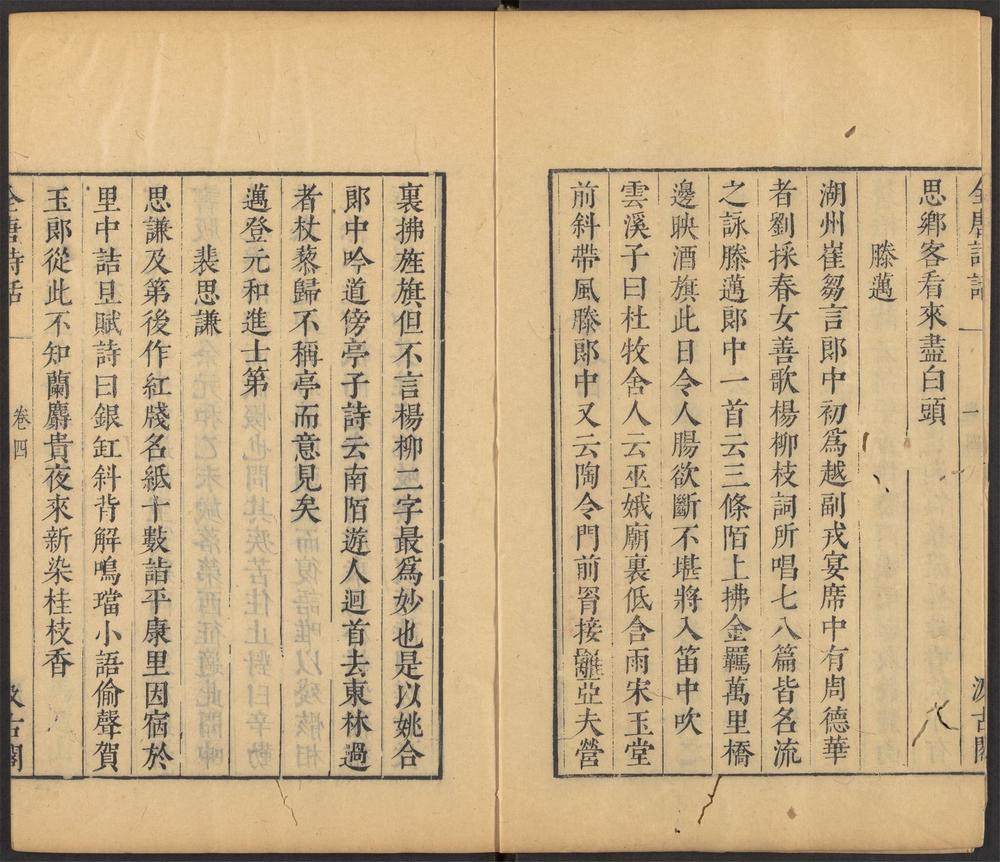 全唐詩話
汲古閣
思鄉客看來盡白頭
滕邁
湖州崔芻言郎中初爲越副戎宴席中有周德華
者劉採春女善歌楊柳枝詞所唱七八篇皆名流
之詠滕邁郎中一首云三條陌上拂金羈萬里橋
邊映酒旗此日令人腸欲斷不堪將入笛中吹
雲溪子曰杜牧舍人云巫娥廟裏低含雨宋玉堂
前斜帶風滕郎中又云陶令門前罥接䍦亞夫營
裏拂旌旗但不言楊柳二字最爲妙也是以姚合
郎中吟道傍亭子詩云南陌遊人迴首去東林過
者杖藜歸不稱亭而意見矣
邁登元和進士第
裴思謙
思謙及第後作紅牋名紙十數詣平康里因宿於
里中詰旦賦詩曰銀缸斜背解鳴璫小語偷聲賀
玉郎從此不知蘭麝貴夜來新染桂枝香
全唐詩話
卷四
汲古閣